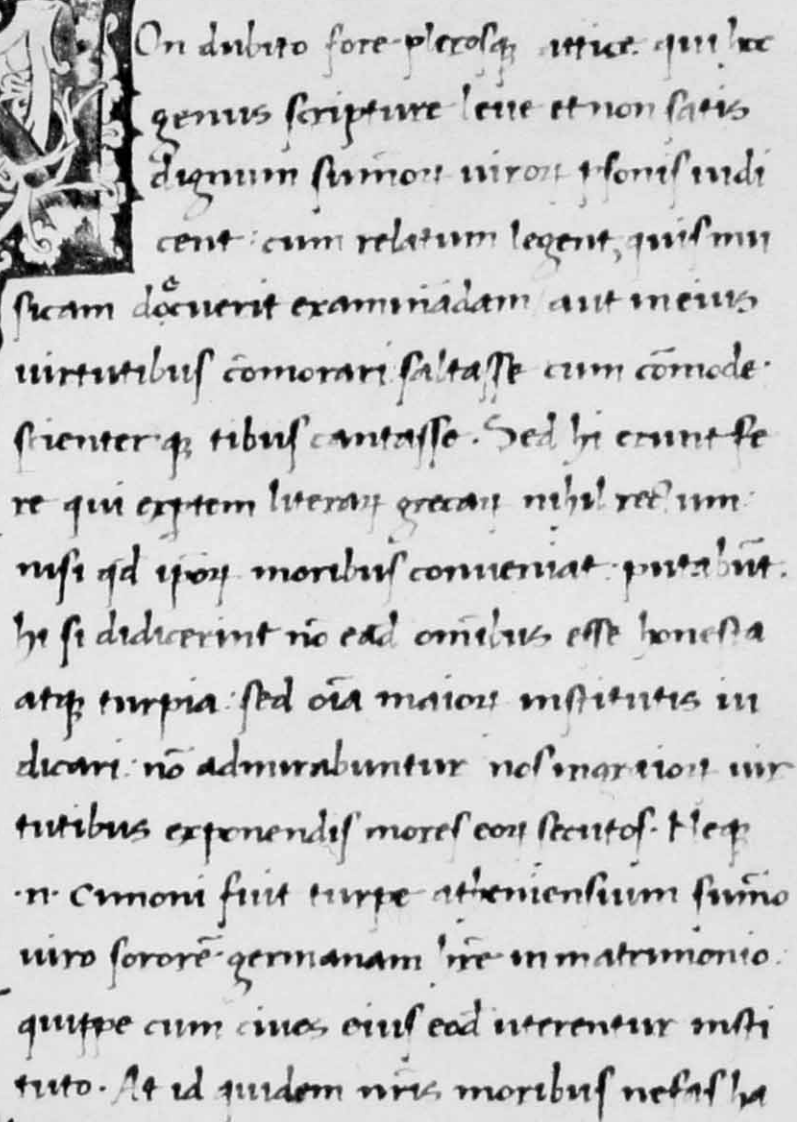 NOn dubito fore plerosq; attice qui hoc
genus scripture leue et non satis
dignum sum̄oꝝ uiroꝝ ꝑsonis iudi
cent: cum relatum legent, quis mu
sicam docuerit examinādam aut in eius
uirtutibus cōmorari saltasse cum cōmode
scienterq; tibus cantasse. Sed hi erunt fe
re qui exꝑtem literaꝝ grecaꝝ nihil rectum
nisi qd ip̄oꝝ moribus conueniat putabūt.
hi si didicerint nō ead̄ omībus esse honesta
atq; turpia: sed oīa maioꝝ institutis iu
dicari: nō admirabuntur nos in graioꝝ uir
tutibus exponendis mores eoꝝ secutos. Neq;
.n. Cimoni fuit turpe atheniensium sum̄o
uiro sororē germanam hr̄e in matrimonio.
quippe cum ciues eius eod̄ uterentur insti
tuto. At id quidem nr̄is moribus nefas ha